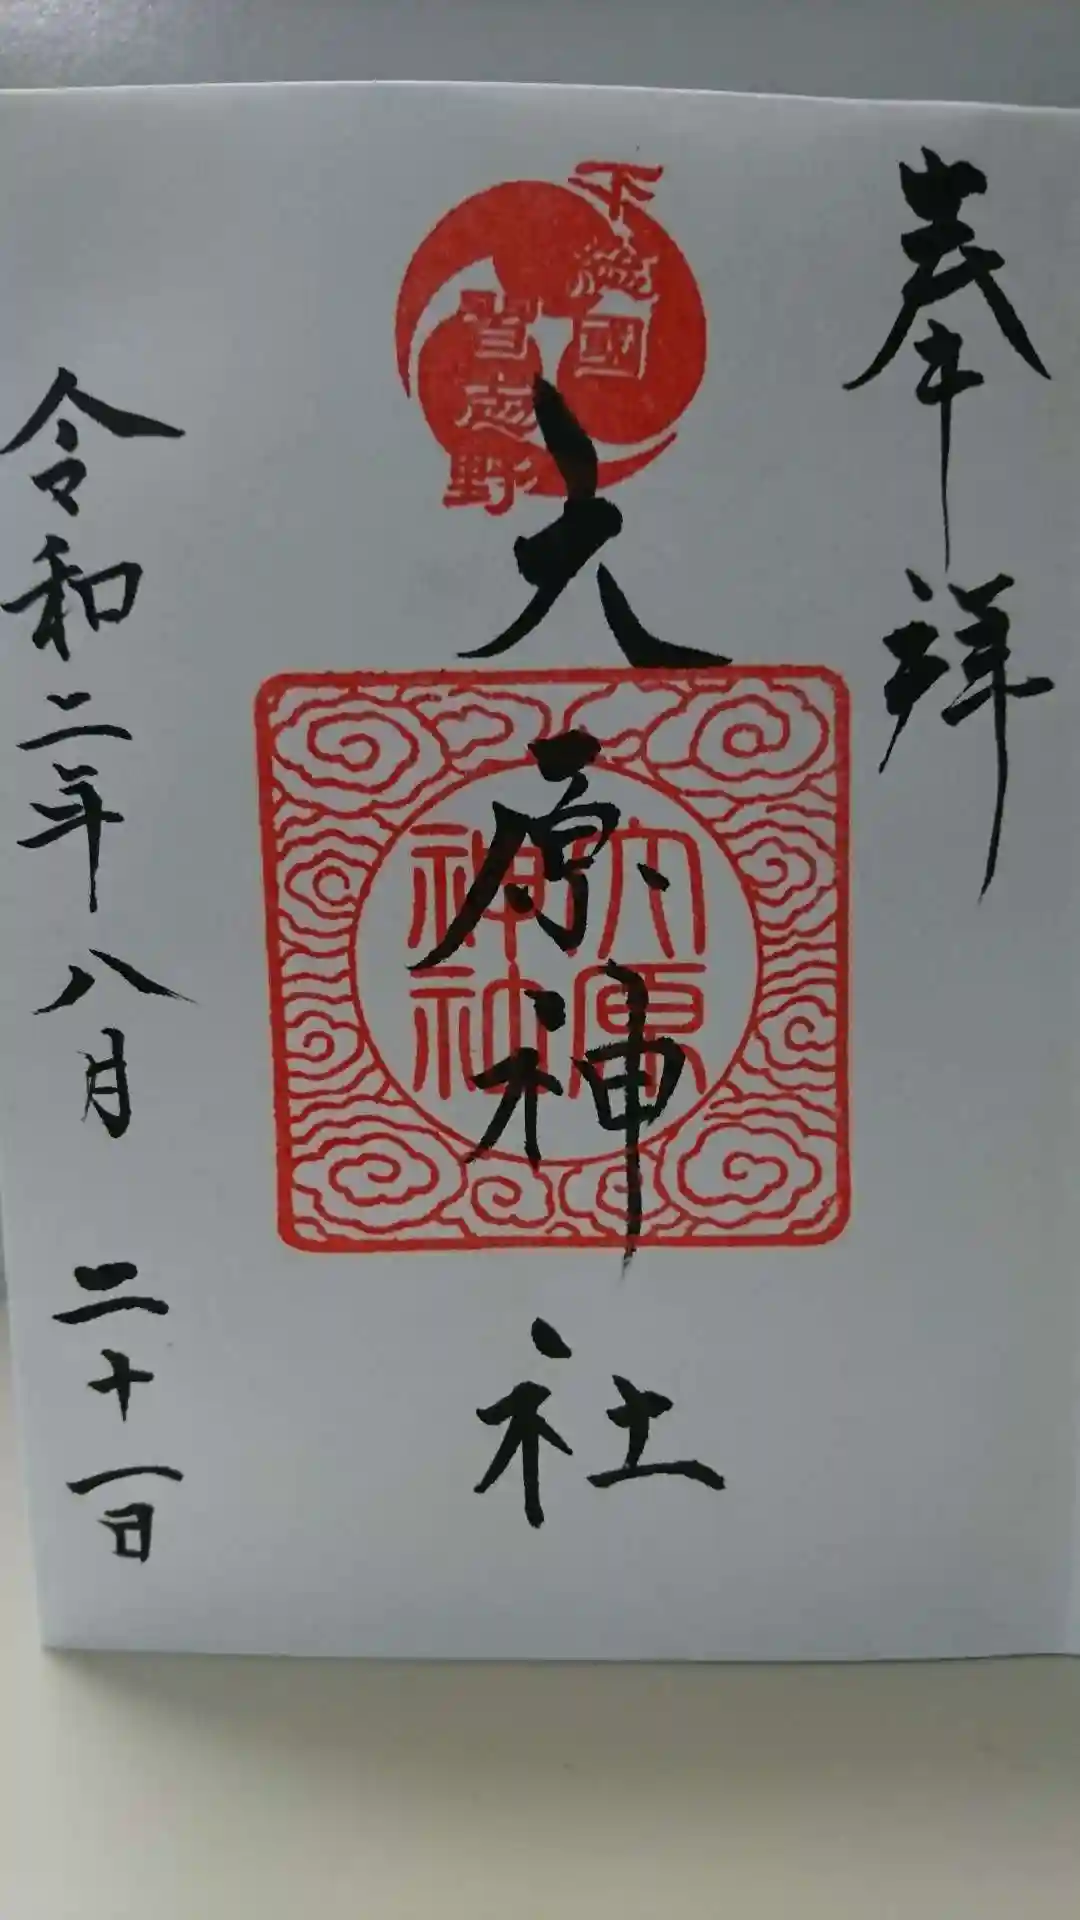 奉拝
下總國
習志野
大原神社
大原
神社
令和二年八月二十一日